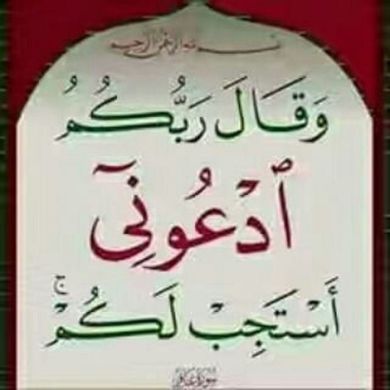 بسم الله الرحمن الرحيم
وَقَالَ رَبُّكُمُ
ٱدْعُونِىٓ
أَسْتَجِبْ لَكُمْ ۚ
سورة غافر